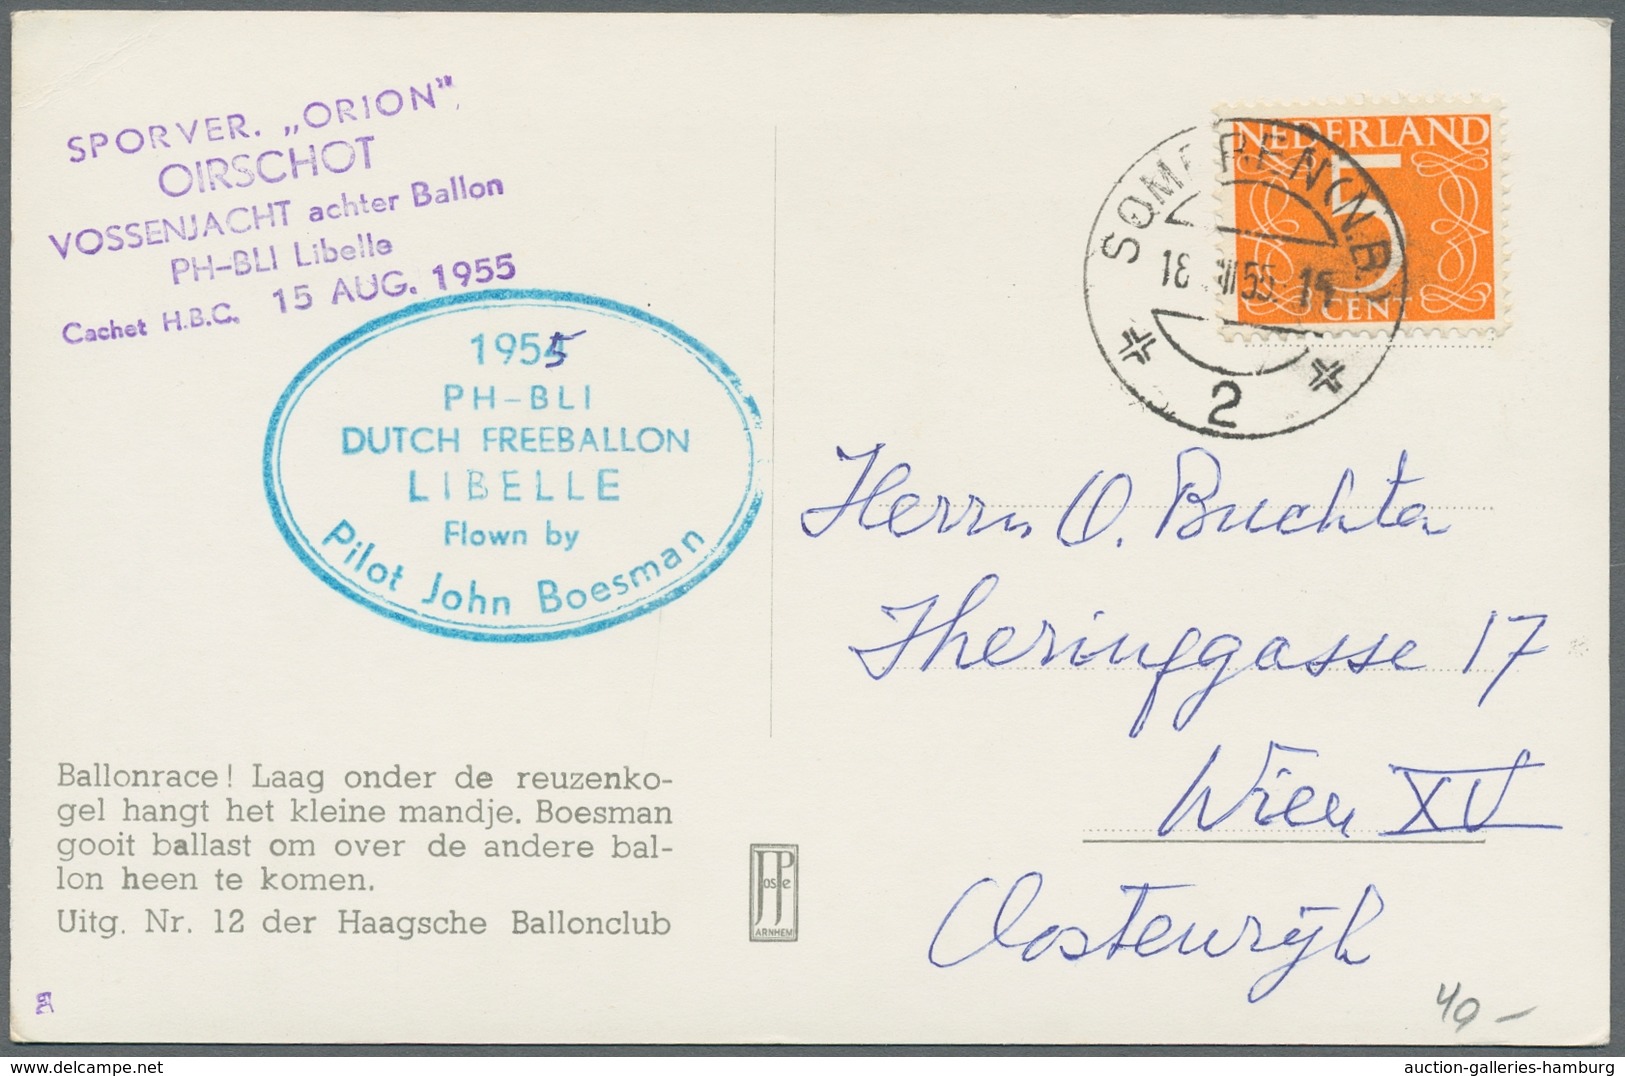 SPORVER. „ORION”
OIRSCHOT
VOSSENJACHT achter Ballon
PH-BLI Libelle
Cachet H.B.C. 15 AUG. 1955
1955
PH-BLI
DUTCH FREEBALLON
LIBELLE
Flown by
Pilot John Boesman
Ballonrace! Laag onder de reuzenko-
gel hangt het kleine mandje. Boesman
gooit ballast om over de andere bal-
lon heen te komen.
Uitg. Nr. 12 der Haagsche Ballonclub
JosPe
ARNHEM
NEDERLAND
5
CENT
SOMEREN (N.B.)
2
Herrn O. Buchta
Theringgasse 17
Wien XV
Oostenrijk
40 -
auction-galleries-hamburg